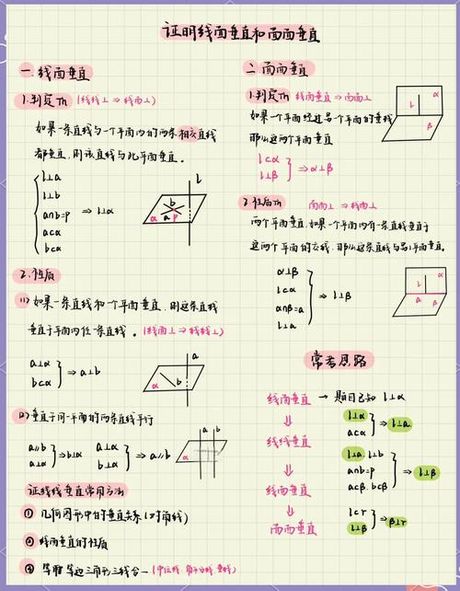 证明线面垂直和面面垂直
一.线面垂直
1.判定Th (线线⊥ ⇒ 线面⊥)
如果一条直线与一个平面内的两条相交直线
都垂直,则该直线与此平面垂直。
l⊥a
l⊥b
a∩b=P ⇒ l⊥α
a⊂α
b⊂α
l
b
α a P
2.性质
(1) 如果一条直线和一个平面垂直,则这条直线
垂直于平面内任一条直线。(线面⊥ ⇒ 线线⊥)
a⊥α
b⊂α
⇒ a⊥b
a
α b
(2) 垂直于同一平面的两条直线平行
a∥b
a⊥α
⇒ b⊥α
a⊥α
b⊥α
⇒ a∥b
a b
α
证线线垂直常用方法
① 几何图形中的垂直关系
② 线面垂直的性质
③ 等腰等边三角形三线合一 (中位线 角平分线 垂线)
二.面面垂直
1.判定Th 线面垂直 ⇒ 面面⊥
如果一个平面经过另一个平面的垂线
那么这两个平面垂直
l⊂α
l⊥β
⇒ α⊥β
α
l
β
2.性质Th 面面⊥ ⇒ 线面⊥
两个平面垂直,如果一个平面内有一条直线垂直于
这两个平面的交线,那么这条直线与另1平面垂直。
α⊥β
l⊂α
α∩β=a
l⊥a
⇒ l⊥β
l α
a β
常考思路
线面垂直 → 题目已知 l⊥α
⇓
线线垂直
⇓
线面垂直
⇓
面面垂直
l⊥α
a⊂α
⇒ l⊥a
l⊥a l⊥b
a∩b=P
a⊂β.b⊂β
⇒ l⊥β
l⊂r
l⊥β
⇒ β⊥r